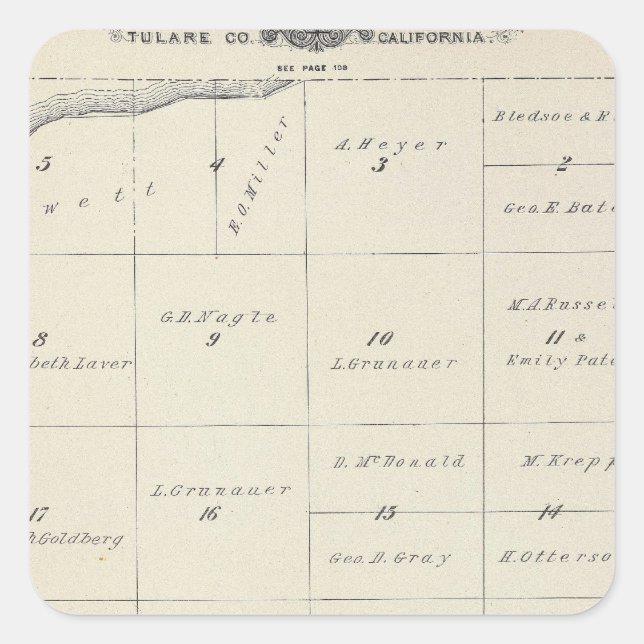 TULARE CO. CALIFORNIA.
SEE PAGE 108
5
wett
4
E.O. Miller
A. Heyer
3
Bledsoe &
2
Geo. E. Bate
8
beth Laver
G.D. Nagle
9
10
L. Grunauer
M.A. Russe
11 &
Emily Pate
17
h Goldberg
L. Grunauer
16
D. McDonald
15
Geo. D. Gray
M. Krepp
14
H. Otterso